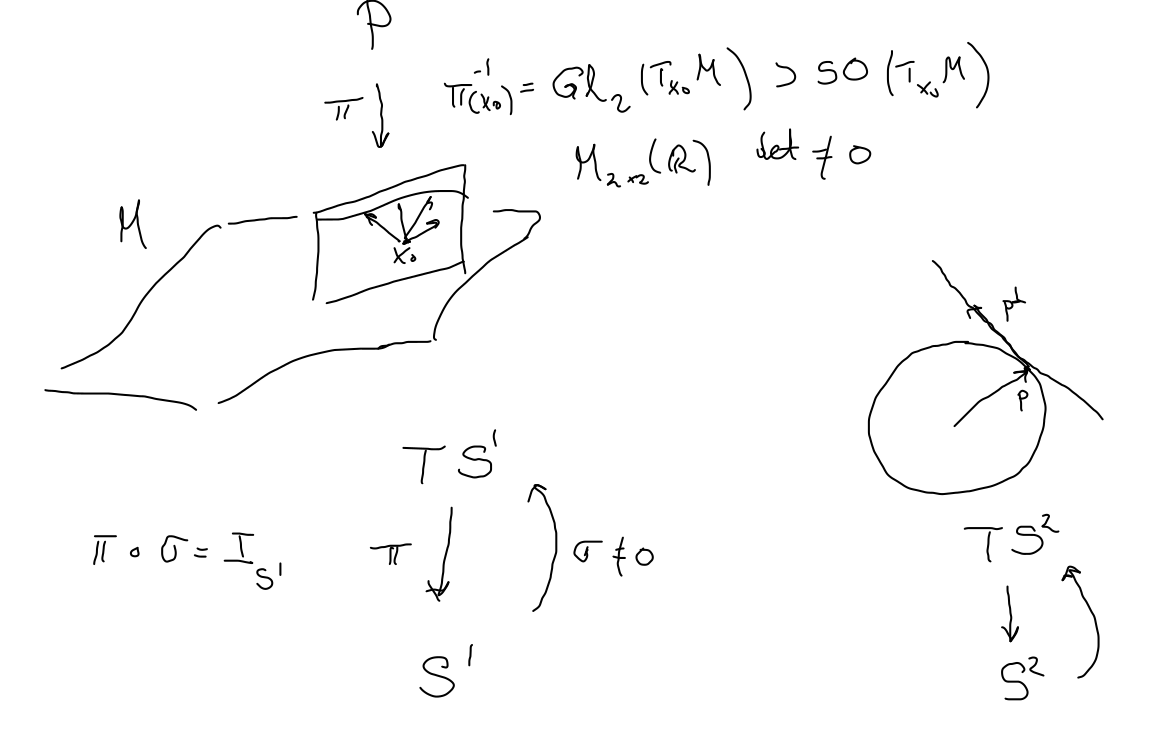 P
π π⁻¹(x₀) = Gl₂ (Tₓ₀M) ⊃ SO (Tₓ₀M)
M₂ₓ₂(ℝ) det ≠ 0
M
x₀
p⊥
p
T S¹
π ∘ σ = I_S¹ π σ ≠ 0
S¹
T S²
S²